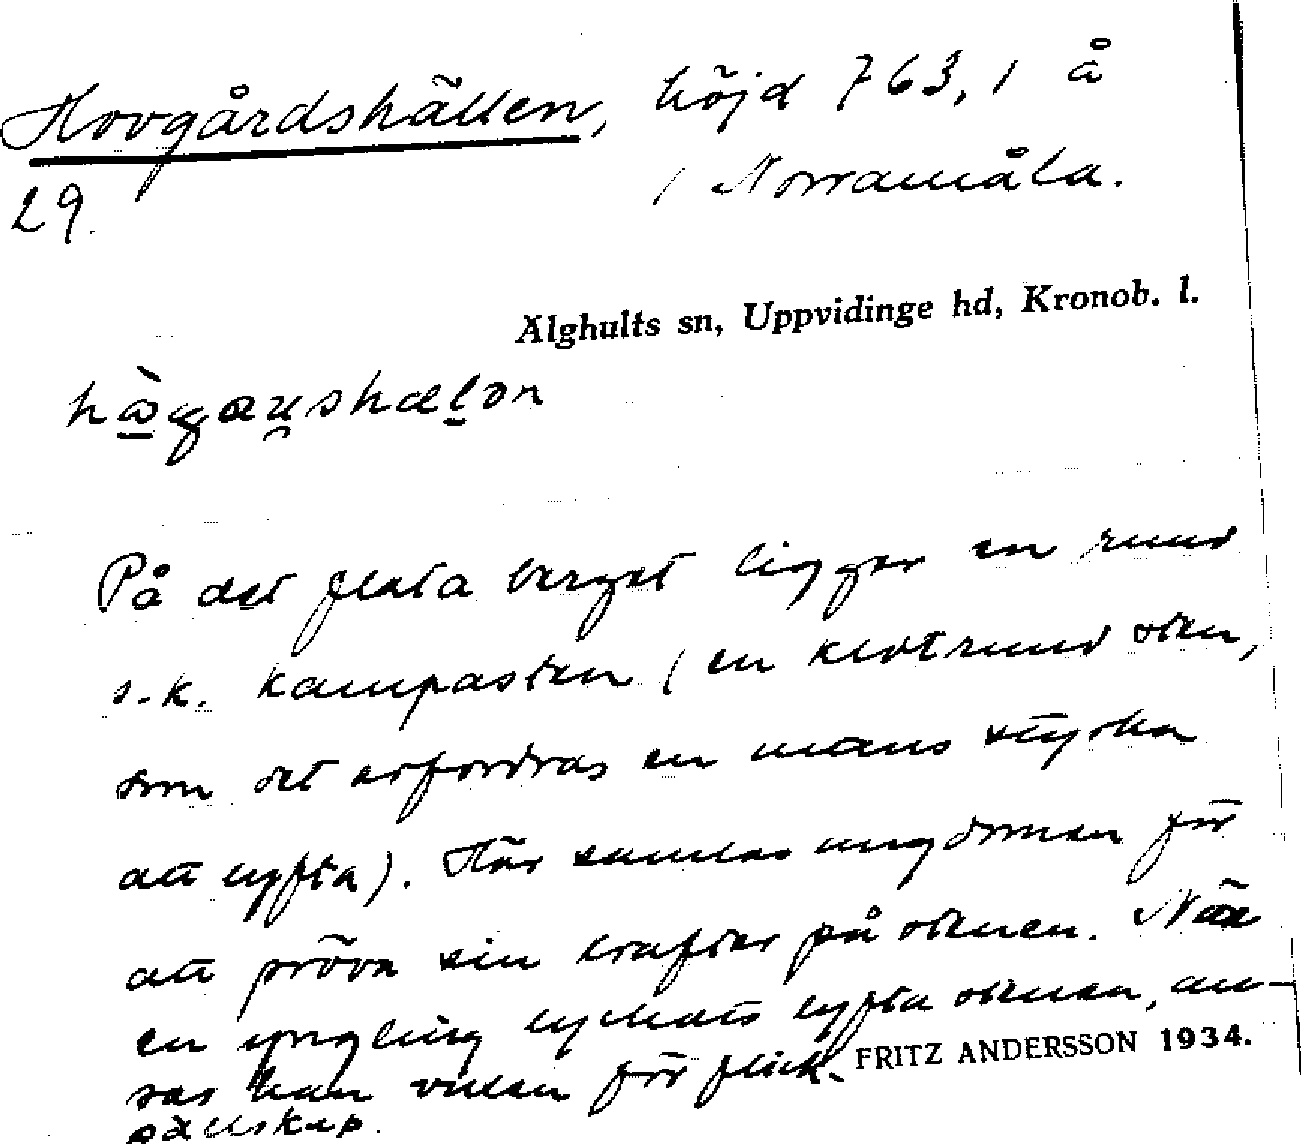 Hovgårdshällen, höjd 763,1 å
29. / Norramåla.
Älghults sn, Uppvidinge hd, Kronob. l.
På det flata berget ligger en rund
s.k. kampasten (en klotrund sten,
som det erfordras en mans styrka
att lyfta). Här samlas ungdomen för
att pröva sin krafter på stenen. När
en yngling lyckats lyfta stenen, an-
sas han vuxen för flick-
sällskap.
FRITZ ANDERSSON 1934.